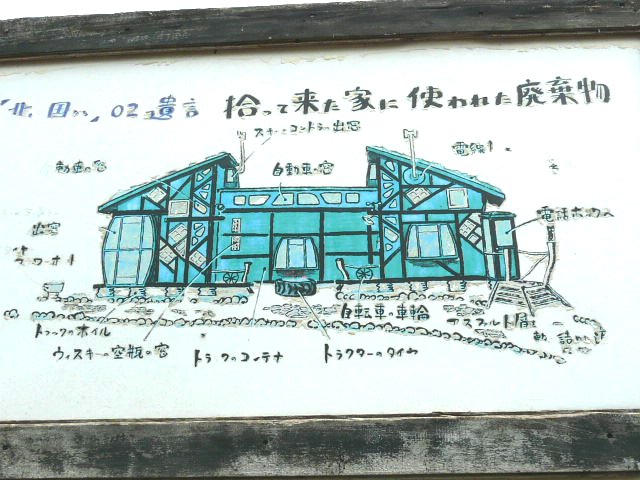 「北の国から」02遺言 拾って来た家に使われた廃棄物
スキーとゴンドラの出窓
自動車の窓
電線
電話ボックス
出窓
トラックのホイル
ウィスキーの空瓶の窓
トラックのコンテナ
トラクターのタイヤ
自転車の車輪
アスファルト屑